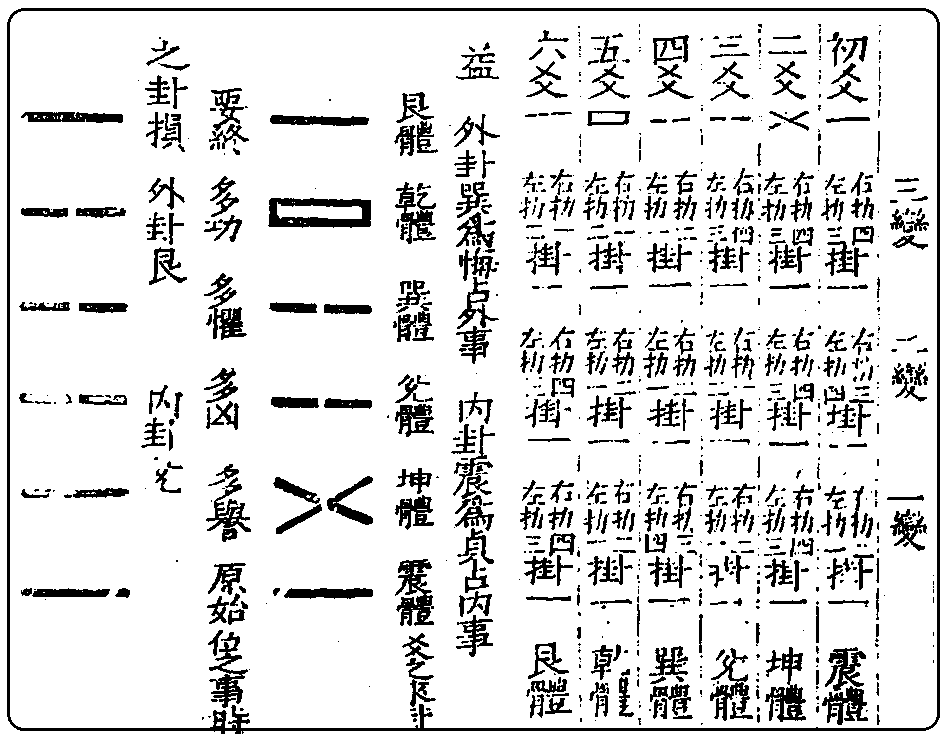 三變
二變
一變
初爻 右扐四 左扐三 掛一 右扐三 左扐四 掛一 掛一 震體
二爻 右扐四 左扐三 掛一 右扐四 左扐三 掛一 右扐四 左扐三 掛一 坤體
三爻 右扐四 左扐三 掛一 右扐二 左扐一 掛一 右扐二 左扐一 掛一 兌體
四爻 右扐二 左扐一 掛一 右扐二 左扐一 掛一 右扐三 左扐四 掛一 巽體
五爻 右扐一 左扐二 掛一 右扐二 左扐一 掛一 右扐二 左扐一 掛一 乾體
六爻 右扐一 左扐二 掛一 右扐四 左扐三 掛一 右扐四 左扐三 掛一 艮體
益 外卦巽為悔占外事 內卦震為貞占內事
艮體 乾體 巽體 兌體 坤體 震體
要終 多功 多懼 多凶 多譽 原始 位之事時
之卦損 外卦艮 內卦兌